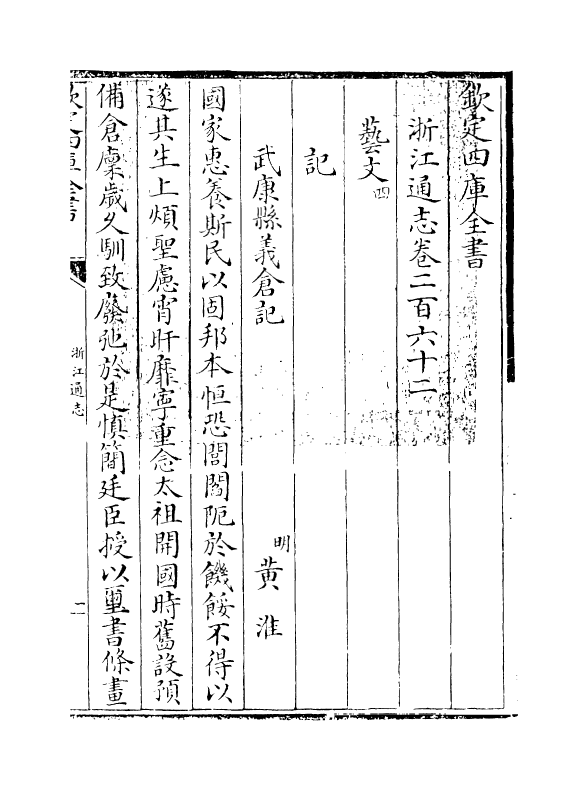 欽定四庫全書
浙江通志卷二百六十二
藝文四
記
武康縣義倉記　明黄淮
國家惠養斯民以固邦本恒恐閭閻阨於饑餒不得以
遂其生上煩聖慮宵旰靡寧重念太祖開國時舊設預
備倉廩歲久馴致廢弛於是慎簡廷臣授以璽書條畫
欽定四庫全書
浙江通志